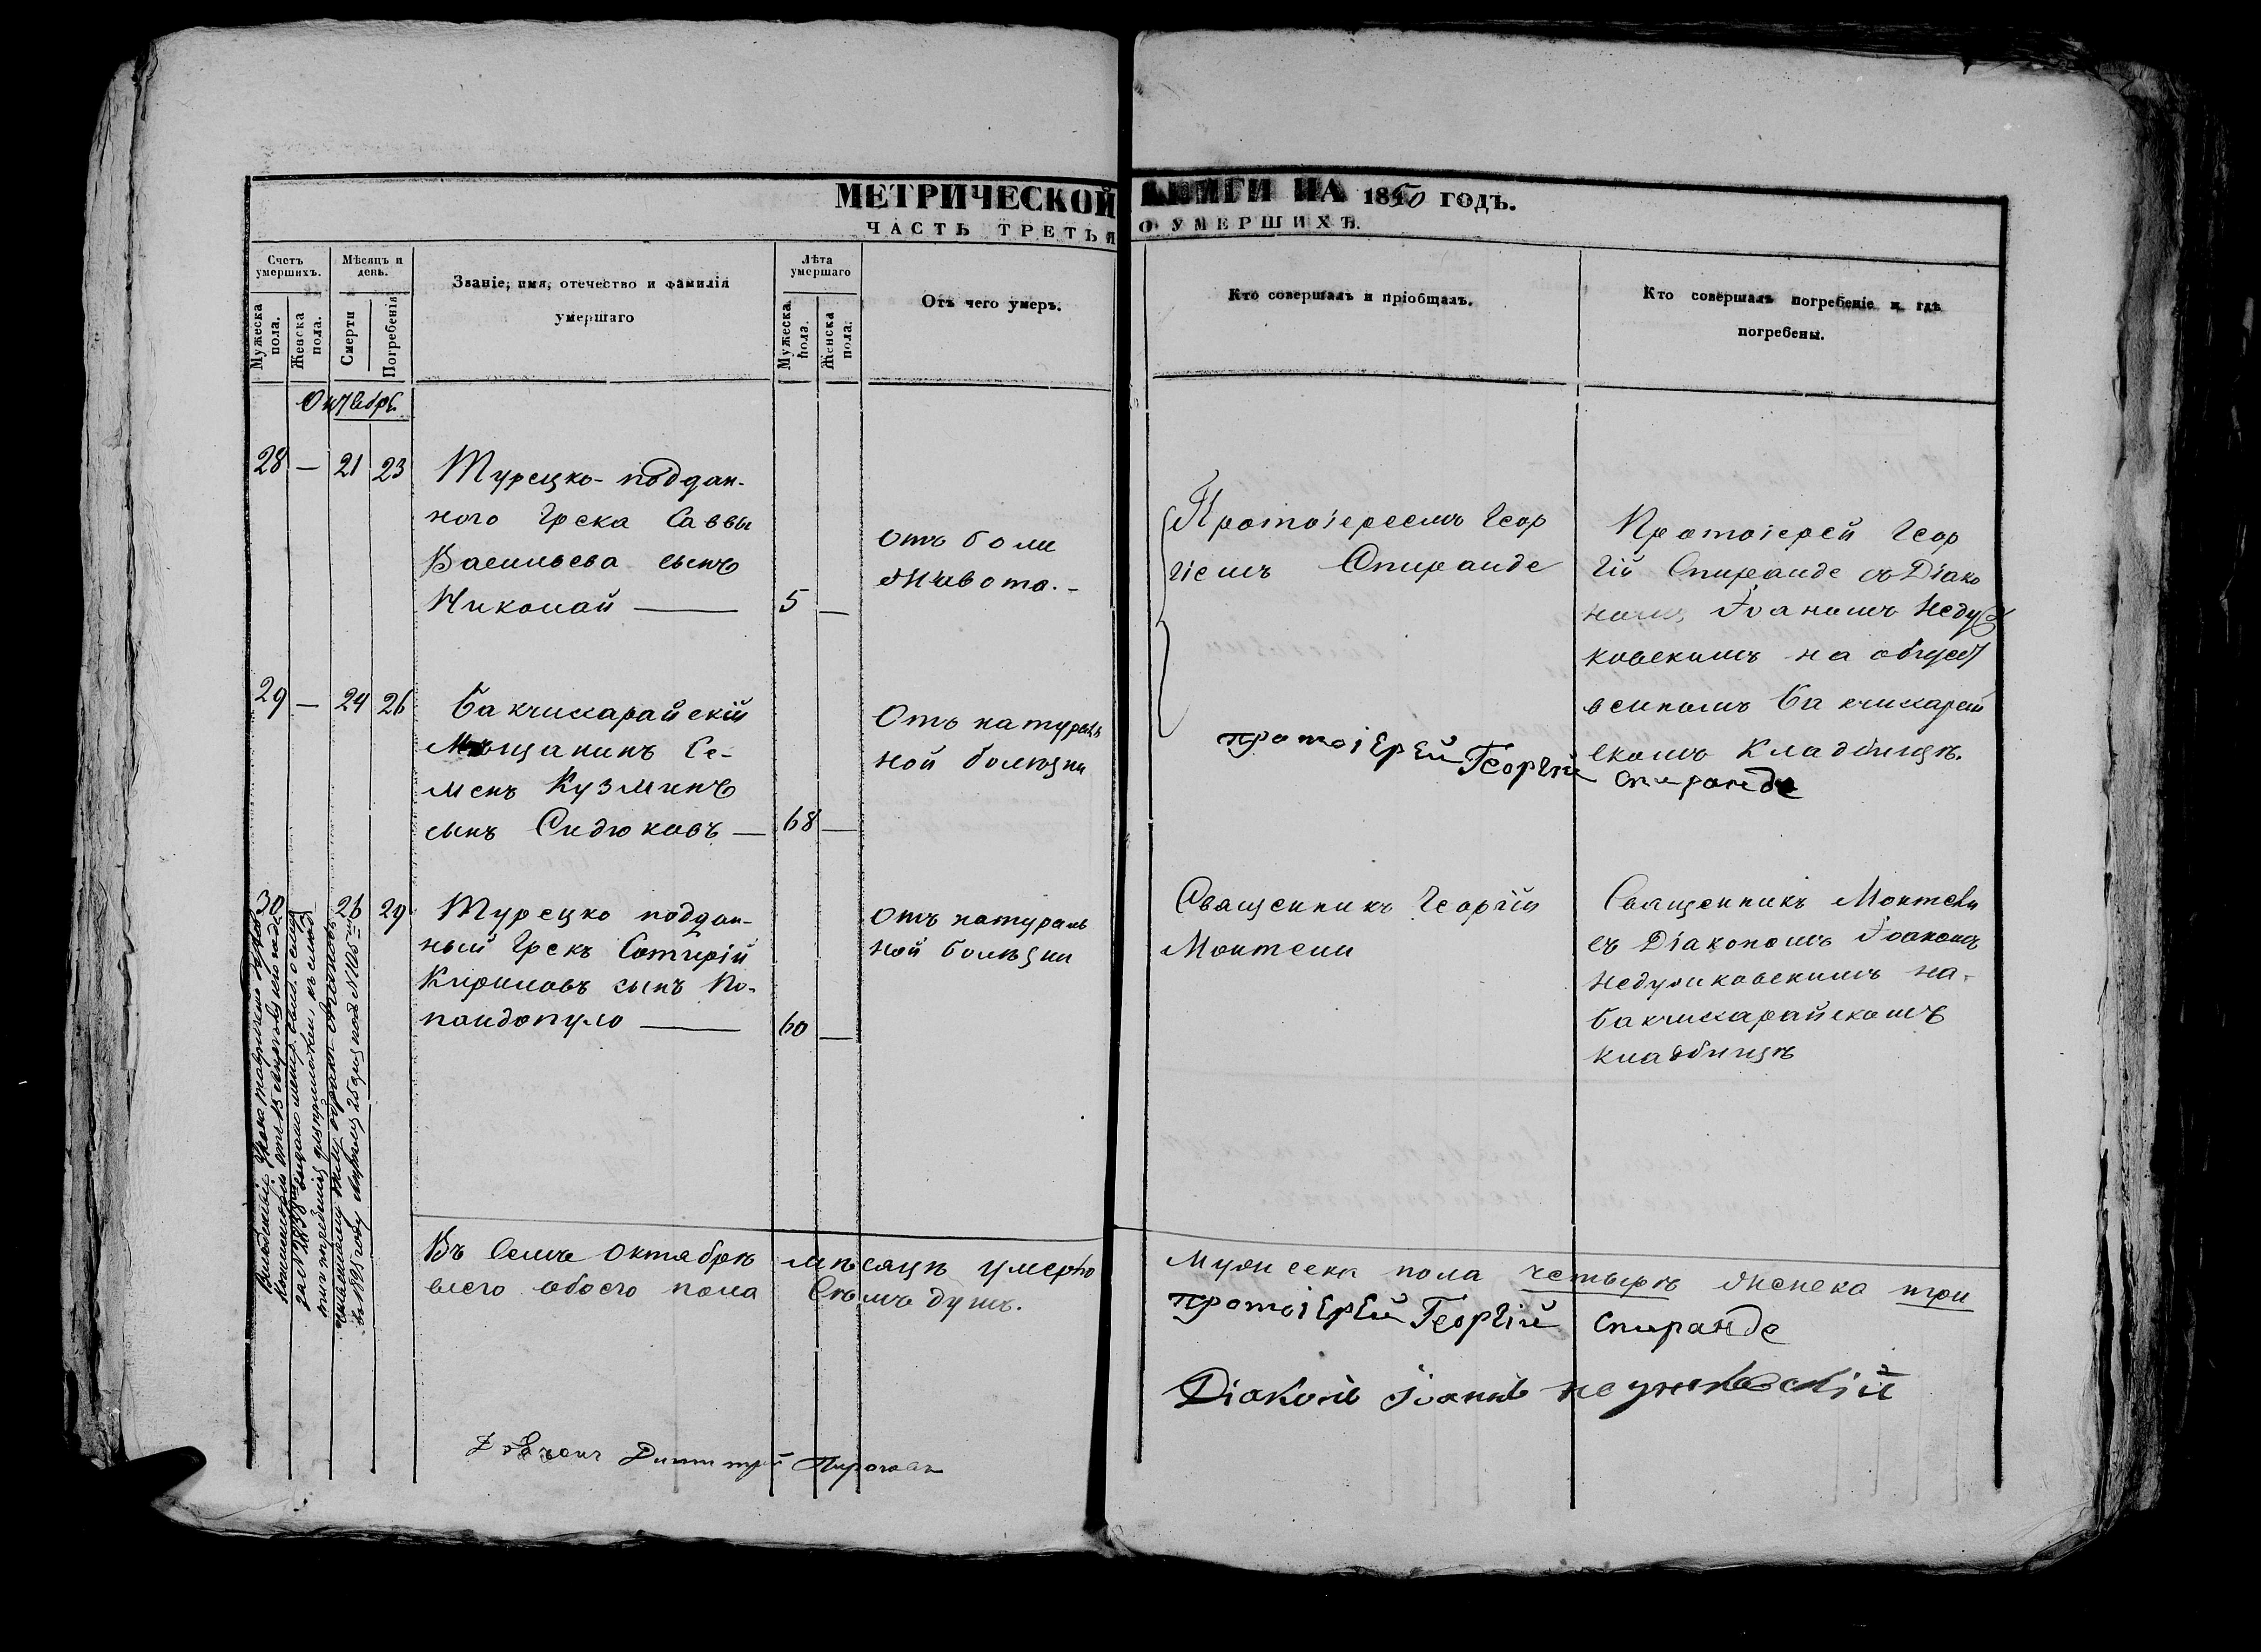 МЕТРИЧЕСКОЙ КНИГИ НА 1850 ГОДЪ.
ЧАСТЬ ТРЕТЬЯ О УМЕРШИХЪ.
Счетъ умершихъ.
Мужеска пола.
Женска пола.
Мѣсяцъ и день.
Смерти
Погребенія
Званіе, имя, отечество и фамилія
умершаго
Лѣта умершаго
Мужеска пола.
Женска пола.
Отъ чего умеръ.
Кто совершалъ и пріобщалъ.
Кто совершалъ погребеніе и гдѣ
погребены.
Октябрь
28 — 21 23
Турецко-поддан-
ного Грека Саввы
Васильева сынъ
Николай —
5 —
отъ боли
живота.-
Протоіереемъ Геор
гіемъ Спиранде
Протоіерей Геор
гій Спиранде съ Діако
номъ Іоаномъ Недз
ковскимъ на общест
венномъ Бакчисарай
скомъ Кладбищѣ.
29 — 24 26
Бакчисарайскій
Мѣщанинъ Се-
менъ Кузминъ
сынъ Сидюковъ —
68 —
Отъ натураль
ной болѣзни
протоіерей Георгій Спиранде
30 26 29
Турецко поддан-
ный Грекъ Сотирій
Кириловъ сынъ По-
пандопуло —
60 —
отъ натураль
ной болѣзни
Священникъ Георгій
Монтени
Священникъ Монтени
съ Діакономъ Іоаномъ
на-
бакчисарайскомъ
кладбищѣ
Въ семъ октябрѣ мѣсяцѣ умерло
всего обоего пола Семь душъ.
Мужеска пола четырѣ женска три
протоіерей Георгій Спиранде
Діаконъ Іоаннъ
Димитрій